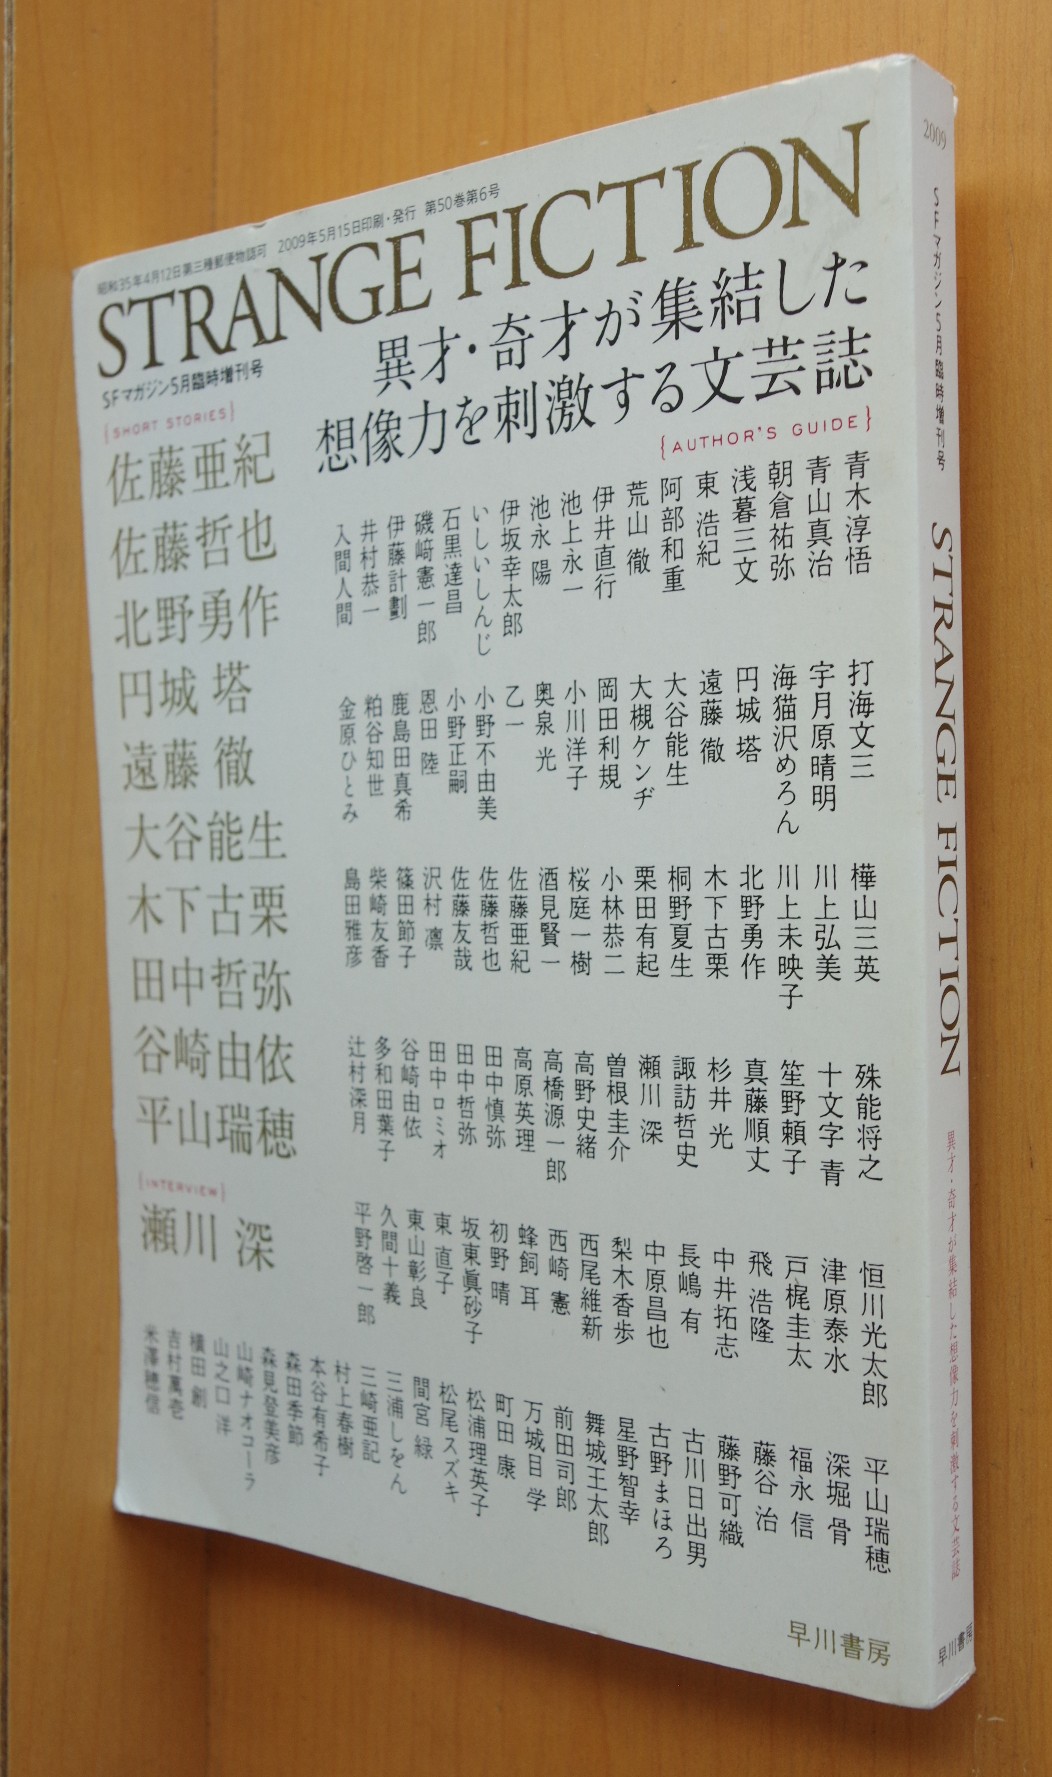 昭和35年4月12日第三種郵便物認可 2009年5月15日印刷・発行 第50巻第6号
STRANGE FICTION
SFマガジン5月臨時増刊号
異才・奇才が集結した
想像力を刺激する文芸誌
{SHORT STORIES}
佐藤亜紀
佐藤哲也
北野勇作
円城 塔
遠藤 徹
大谷能生
木下古栗
田中哲弥
谷崎由依
平山瑞穂
{INTERVIEW}
瀬川 深
{AUTHOR'S GUIDE}
青木淳悟
青山真治
朝倉祐弥
浅暮三文
東 浩紀
阿部和重
荒山 徹
伊井直行
池上永一
池永 陽
伊坂幸太郎
いしいしんじ
石黒達昌
磯﨑憲一郎
伊藤計劃
井村恭一
入間人間
打海文三
宇月原晴明
海猫沢めろん
円城 塔
遠藤 徹
大谷能生
大槻ケンヂ
岡田利規
小川洋子
奥泉 光
乙一
小野不由美
小野正嗣
恩田 陸
鹿島田真希
粕谷知世
金原ひとみ
樺山三英
川上弘美
川上未映子
北野勇作
木下古栗
桐野夏生
栗田有起
小林恭二
桜庭一樹
酒見賢一
佐藤亜紀
佐藤哲也
佐藤友哉
沢村 凛
篠田節子
柴崎友香
島田雅彦
殊能将之
十文字 青
笙野頼子
真藤順丈
杉井 光
諏訪哲史
瀬川 深
曽根圭介
高野史緒
高橋源一郎
高原英理
田中慎弥
田中哲弥
田中ロミオ
谷崎由依
多和田葉子
辻村深月
恒川光太郎
津原泰水
戸梶圭太
飛 浩隆
中井拓志
長嶋 有
中原昌也
梨木香歩
西尾維新
西崎 憲
蜂飼 耳
初野 晴
坂東眞砂子
東 直子
東山彰良
久間十義
平野啓一郎
平山瑞穂
深堀 骨
福永 信
藤谷 治
藤野可織
古川日出男
古野まほろ
星野智幸
舞城王太郎
前田司郎
万城目 学
町田 康
松浦理英子
松尾スズキ
間宮 緑
三浦しをん
三崎亜記
村上春樹
本谷有希子
森田季節
森見登美彦
山崎ナオコーラ
山之口 洋
横田 創
吉村萬壱
米澤穂信
早川書房
2009
SFマガジン5月臨時増刊号
STRANGE FICTION
異才・奇才が集結した想像力を刺激する文芸誌
早川書房